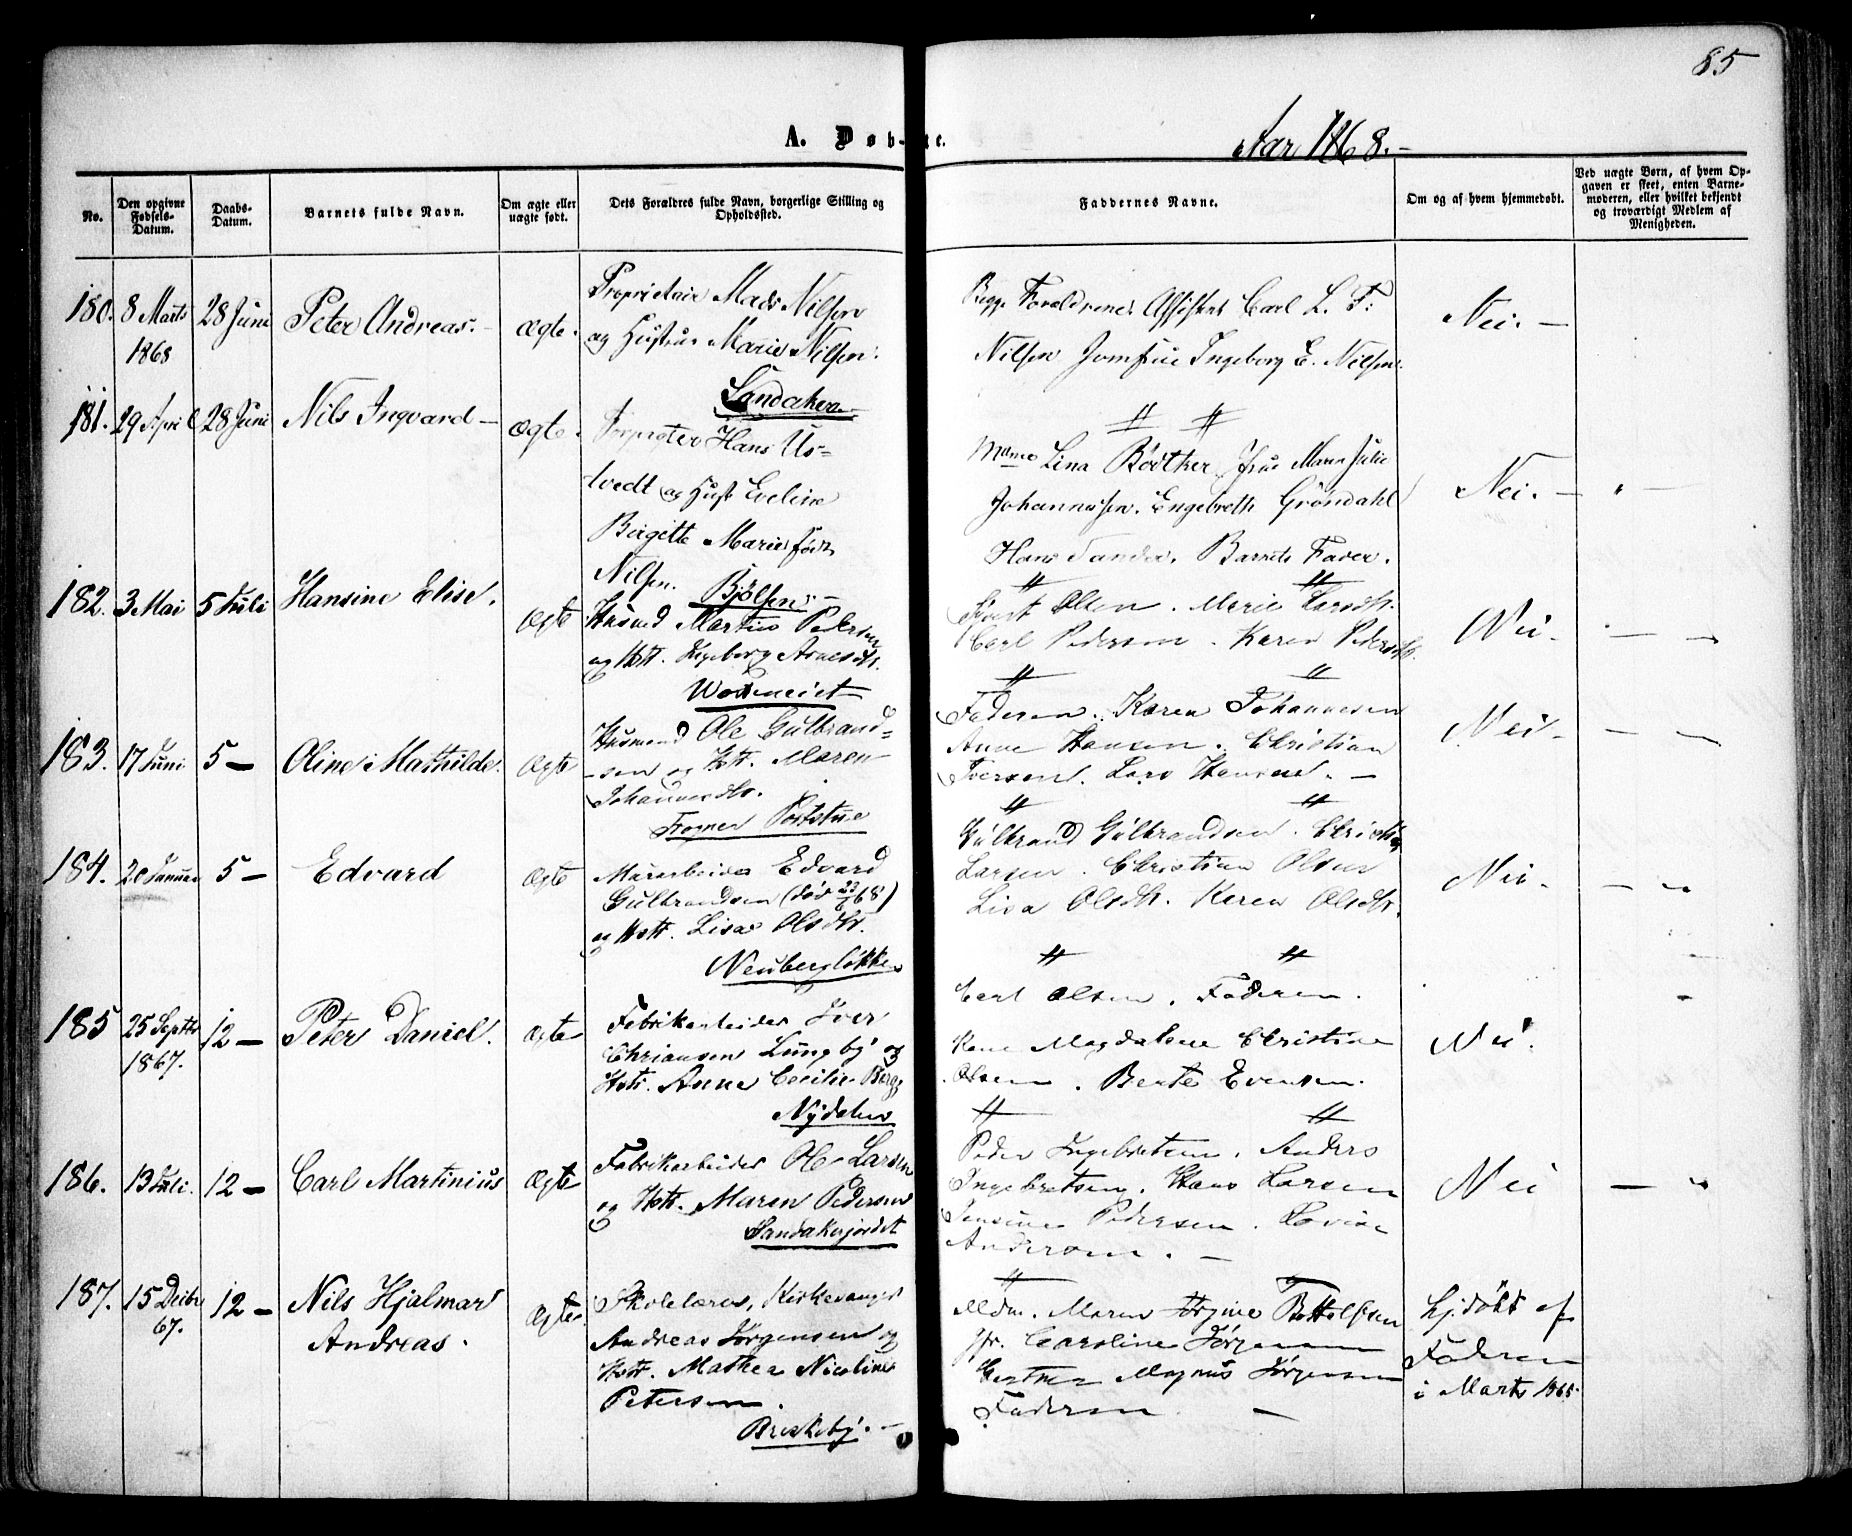 85
A. Døb-te.
Aar 1868.-
No.
Den opgivne Fødsels-Datum.
Daabs-Datum.
Barnets fulde Navn.
Om ægte eller uægte født.
Dets Forældres fulde Navn, borgerlige Stilling og Opholdssted.
Faddernes Navne.
Om og af hvem hjemmedøbt.
Ved uægte Børn, af hvem Opgaven er skeet, enten Barnemoderen, eller hvilket bekjendt og troværdigt Medlem af Menigheden.
180. 8 Marts 1868 28 Juni Peter Andreas. Ægte.
Proprietair Mads Nilsen
og Hustru Marie Nilsen.
Sandaker
Begge Forældrene Assistent Carl L. F:
Nilsen Jomfrue Ingeborg E. Nilsen.
Nei. —
181. 29 April 28 Juni Nils Ingvard — Ægte.
Forpagter Hans Us=
tvedt og Hust Eveline
Birgitte Marie født
Nilsen. Bjølsen. -
Mame Lina Bødtker Frue Marie Julie
Johannesen. Engebreth Grøndahl
Hans Sander. Barnets Fader.
Nei. —
182. 3 Mai 5 Juli Hansine Elise. Ægte
Husmd Martin Pedersen
og Hstr. Ingeborg Arnesdtr.
Olsen. Marie Larsdtr.
Carl Pedersen. Karen Pedersdtr.
Nei.
183. 17 Juni 5 — Oline Mathilde. Ægte
Husmand Ole Gulbrand=
sen og Hstr. Maren
Johannesdtr.
Frogner Portstue
Faderen. Karen Johannesen
Anne Hansen. Christian
Iversen. Lars Hansen. —
Nei.
184. 20 Januar 5 — Edvard Ægte
Murarbeider Edvard
Gulbrandsen (død 23/6 68)
og Hstr. Lisa Olsdtr.
Neuberglökken
Gulbrand Gulbrandsen.
Larsen. Christian Olsen
Lisa Olsdtr. Karen Olsdtr.
Nei.
185 25 Septbr 1867. 12 — Peter Daniel. Ægte
Fabrikarbeider Iver
Chriansen Lüngby og
Hstr. Anne Cecilie Berg
Nydalen
Carl Olsen. Faderen.
Kone Magdalene Christine
Olsen. Bente Evensen.
Nei.
186. 13 Juli. 12 — Carl Martinius Ægte
Fabrikarbeider Ole Larsen
og Hstr. Maren Pedersen
Sandakerjordet
Peder Ingebretsen. Anders
Ingebretsen. Hans Larsen
Jensine Pedersen. Lovise
Andersen. —
Nei
187. 15 Decbr 67. 12 — Nils Hjalmar Andreas. Ægte.
Skolelærer, Kirkesanger
Andreas Jørgensen og
Hstr. Mathea Nicoline
Petersen.
Briskeby. —
Mdm. Maren Jørgine Bottolfsen
Jfr. Caroline Jørgensen
Gartner Magnus Jørgensen
Faderen. —
hjdøbt af
Faderen
i Marts 1868.